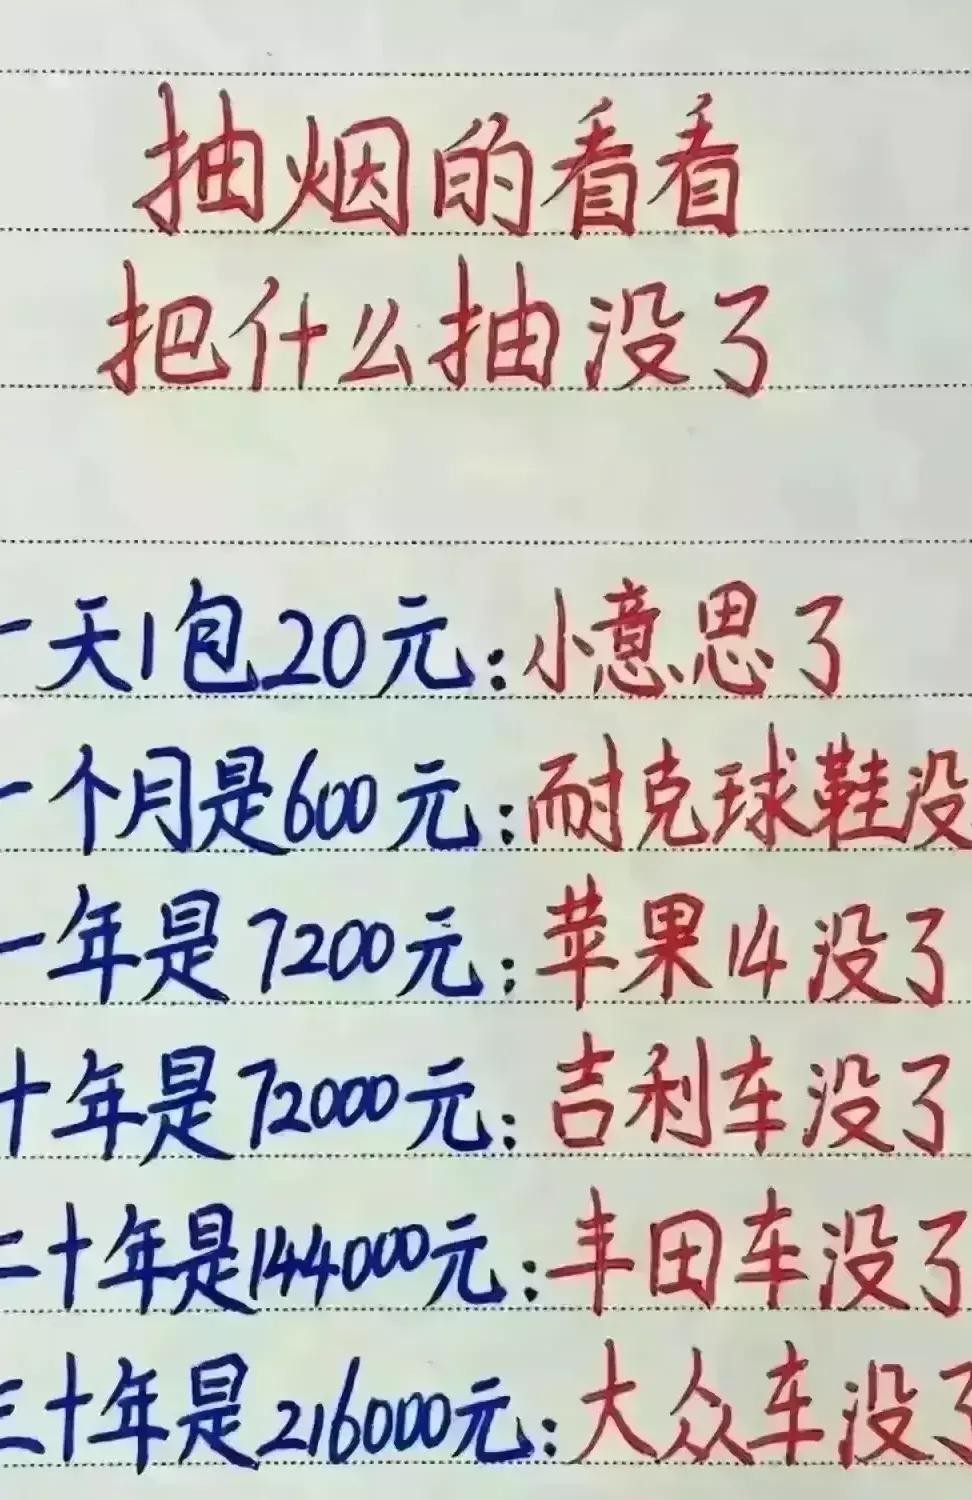 抽烟的看看
把什么抽没了
一天1包20元:小意思了
一个月是600元:耐克球鞋没
一年是7200元:苹果14没了
十年是72000元:吉利车没了
二十年是144000元:丰田车没了
三十年是216000元:大众车没了